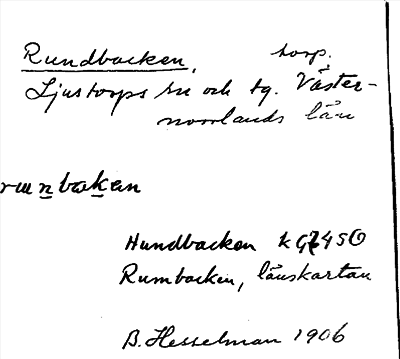 Rundbacken, torp.
Ljustorps sn och tg. Väster-
norrlands län
runbakan
Hundbacken kG7450
Rumbacken, länskartan
B. Hesselman 1906